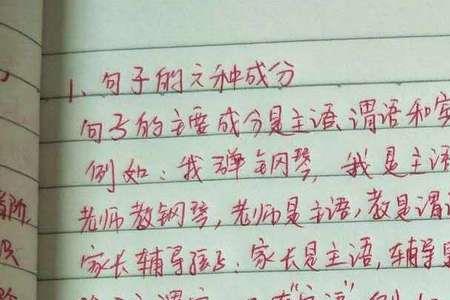 1、句子的六种成分
句子的主要成分是主语、谓语和宾
例如：我弹钢琴，我是主语
老师教钢琴，老师是主语，教是谓语
家长辅导孩子：家长是主语，辅导是